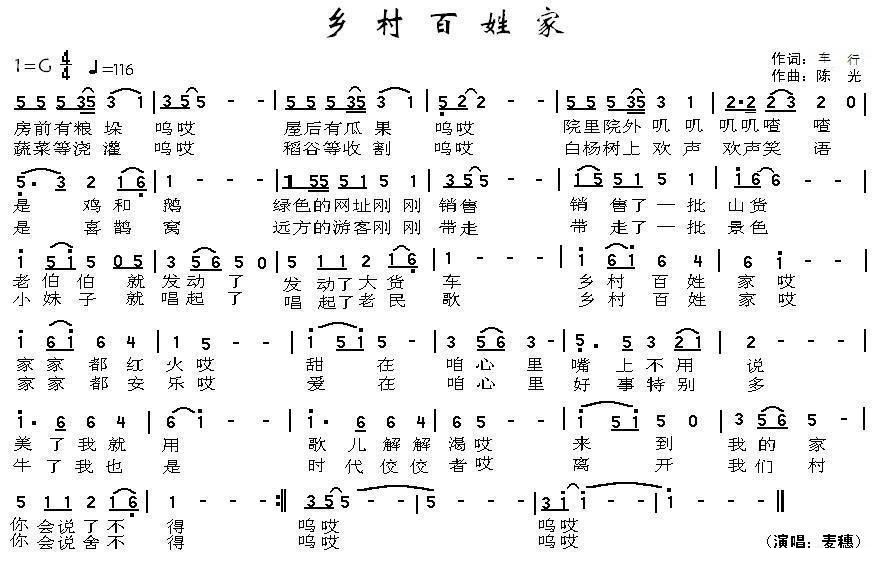 乡村百姓家
1=G 4/4 ♩=116
作词：车 行
作曲：陈 光
5 5 5 5 3 5 3 1 | 3 5 5 - - | 5 5 5 5 3 5 3 1 | 5 2 2 - - | 5 5 5 5 3 5 3 1 | 2· 2 2 2 3 2 0 |
房前有粮 垛 呜哎 屋后有瓜 果 呜哎 院里院外 叽 叽 叽叽喳 喳
蔬菜等浇 灌 呜哎 稻谷等收 割 呜哎 白杨树上 欢 声 欢声笑 语
5· 3 2 1 6 | 1 - - - | 1 5 5 5 3 5 1 5 1 | 3 5 5 - - | 1 5 5 5 1 5 1 | 1 6 6 - - |
是 鸡 和 鹅 绿色的网址刚 刚 销售 销 售了 一 批 山货
是 喜 鹊 窝 远方的游客刚 刚 带走 带 走了 一 批 景色
1 5 1 5 0 5 | 3 5 6 5 0 | 5 1 1 2 1 6 | 1 - - - | 1 6 1 6 4 | 6 1 - - |
老 伯 伯 就 发 动 了 发 动了 大 货 车 乡 村 百 姓 家 哎
小 妹 子 就 唱 起 了 唱 起了 老 民 歌 乡 村 百 姓 家 哎
1 6 1 6 4 | 1 5 - - | 1 5 1 5 - | 3 5 6 3 - | 5· 5 3 2 1 | 2 - - 2 |
家 家 都 红 火 哎 甜 在 咱 心 里 嘴 上 不 用 说
家 家 都 安 乐 哎 爱 在 咱 心 里 好 事 特 别 多
1· 6 6 4 | 6 1 - - | 1 6 6 4 | 6 5 - - | 1 5 1 5 0 | 3 5 6 5 - |
美 了 我 就 用 歌 儿 解 解 渴 哎 来 到 我 的 家
牛 了 我 也 是 时 代 佼 佼 者 哎 离 开 我 们 村
5 1 1 2 1 6 | 1 - - - :‖ 3 5 5 - - | 5 - - - | 3 1 1 - - | 1 - - - ‖
你 会说 了 不 得 呜哎 呜哎
你 会说 舍 不 得 呜哎 呜哎 （演唱：麦穗）